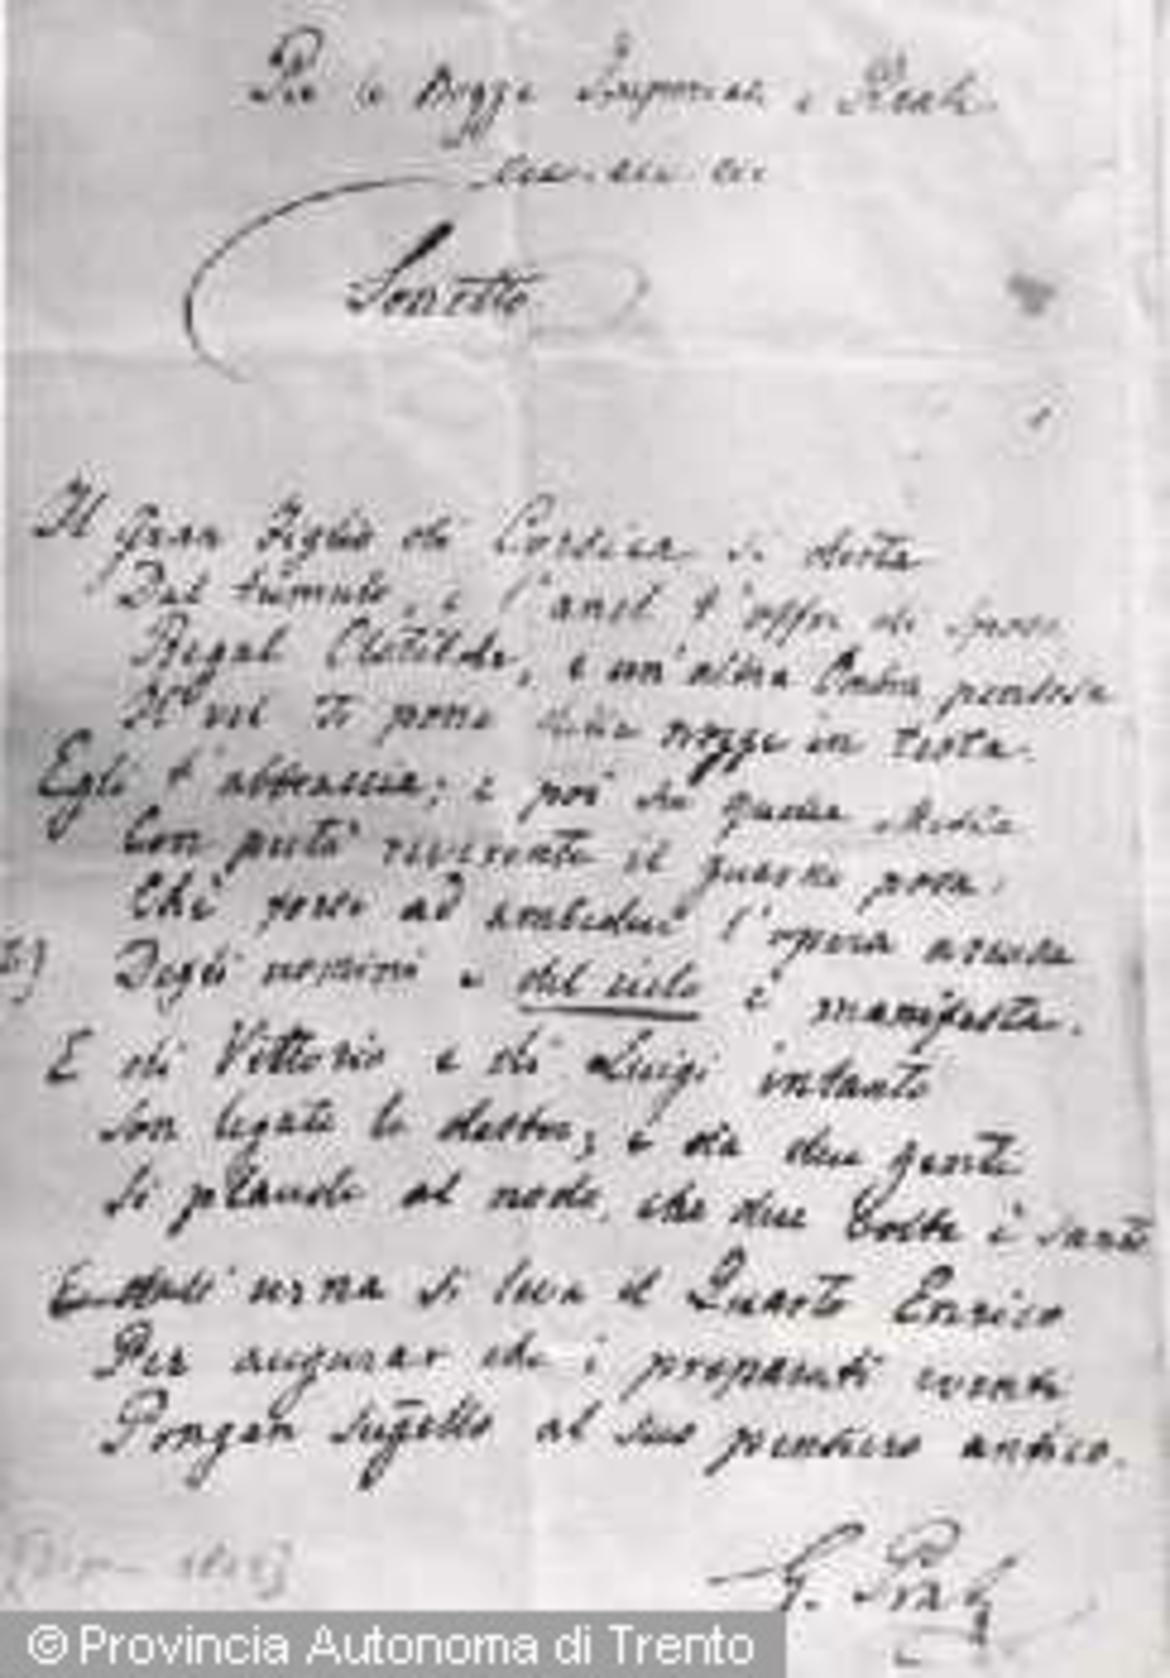 Per le Nozze Imperiali e Reali
Sonetto
Il gran Figlio di Corsica si desta
Dal tumulo, e l'anel t'offre di sposa,
Regal Clotilde, e un'altra Ombra pensosa
Il vel ti pone delle nozze in testa.
Egli t'abbraccia; e poi su quella mesta
Con pietà riverente il guardo posa:
Chè forse ad ambedue l'opera ascosa
Degli uomini e del cielo è manifesta.
E di Vittorio e di Luigi intanto
Son legate le destre; e da due genti
Si plaude al nodo, che due volte è santo
E dall'urna si leva il Quarto Enrico
Per augurar che i preparati eventi
Pongan suggello al suo pensiero antico.
G. Prati
© Provincia Autonoma di Trento